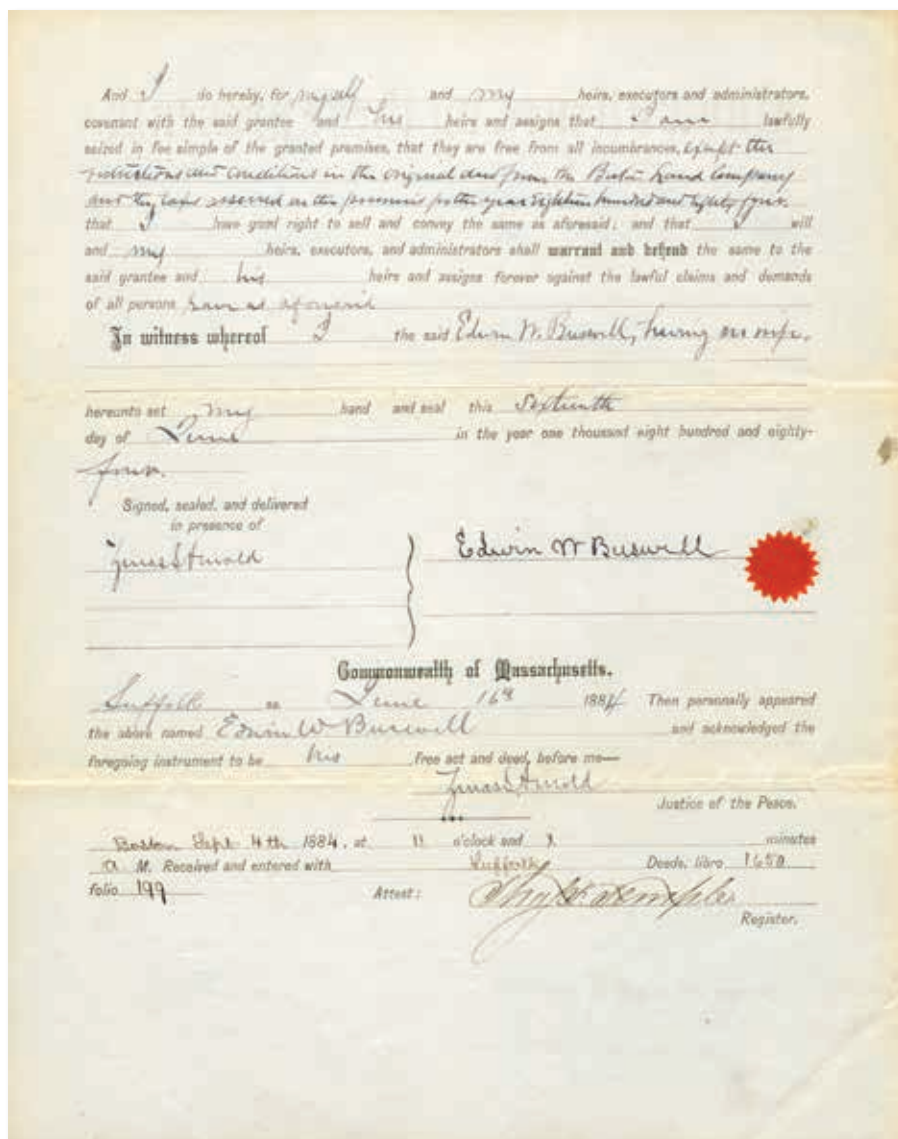 And I do hereby, for myself and my heirs, executors and administrators,
covenant with the said grantee and his heirs and assigns that I am lawfully
seized in fee simple of the granted premises, that they are free from all incumbrances, except the
restrictions and conditions in the original deed from the Boston Land Company
and the taxes assessed on the premises for the year eighteen hundred and eighty four.
that I have good right to sell and convey the same as aforesaid; and that I will
and my heirs, executors, and administrators shall warrant and defend the same to the
said grantee and his heirs and assigns forever against the lawful claims and demands
of all persons save as aforesaid
In witness whereof I the said Edwin W. Buswell, having no wife,
hereunto set my hand and seal this sixteenth
day of June in the year one thousand eight hundred and eighty-
four.
Signed, sealed, and delivered
in presence of
Arnold
Edwin W Buswell
Commonwealth of Massachusetts.
Suffolk ss June 16th 1884 Then personally appeared
the above named Edwin W Buswell and acknowledged the
foregoing instrument to be his free act and deed, before me—
Arnold
Justice of the Peace.
Boston Sept 4th 1884, at 11 o'clock and minutes
A. M. Received and entered with Suffolk Deeds, libro 1650
folio 199 Attest: Temple
Register.